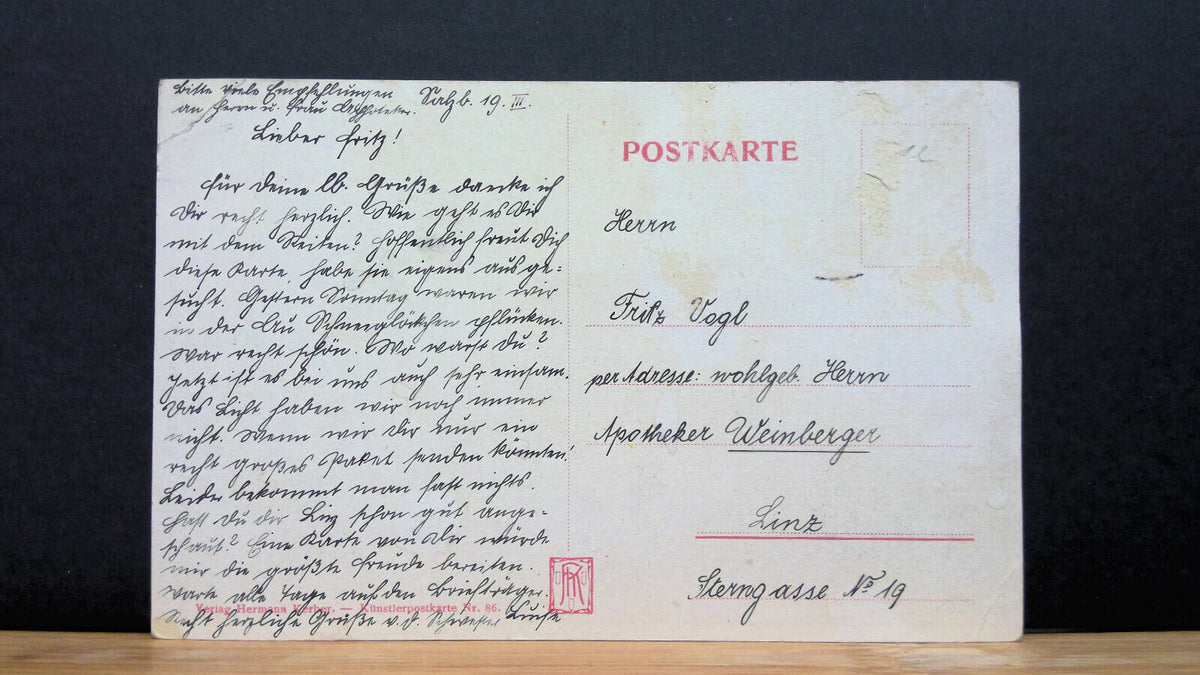 Bitte viele Empfehlungen
an Herrn u. Frau Apotheker.
Salzb. 19. III.
Lieber Fritz!
Für Deine lb. Grüße danke ich
Dir recht herzlich. Wie geht es Dir
mit dem Reiten? Hoffentlich freut Dich
diese Karte habe sie eigens ausge=
sucht. Gestern Sonntag waren wir
in der Au Schneeglöckchen pflücken.
War recht schön. Wo warst Du?
Jetzt ist es bei uns auch sehr einsam.
Das Licht haben wir noch immer
nicht. Wenn wir Dir nur ein
recht großes Paket senden könnten!
Leider bekommt man fast nichts.
Hast Du dir Linz schon gut ange=
schaut? Eine Karte von Dir würde
mir die größte Freude bereiten.
Warte alle Tage auf den Briefträger.
Recht herzliche Grüße v. d. Schwester Luise
Verlag Hermann Kerber. — Künstlerpostkarte Nr. 86.
POSTKARTE
12
Herrn
Fritz Vogl
per Adresse: wohlgeb. Herrn
Apotheker Weinberger
Linz
Sterngasse No 19